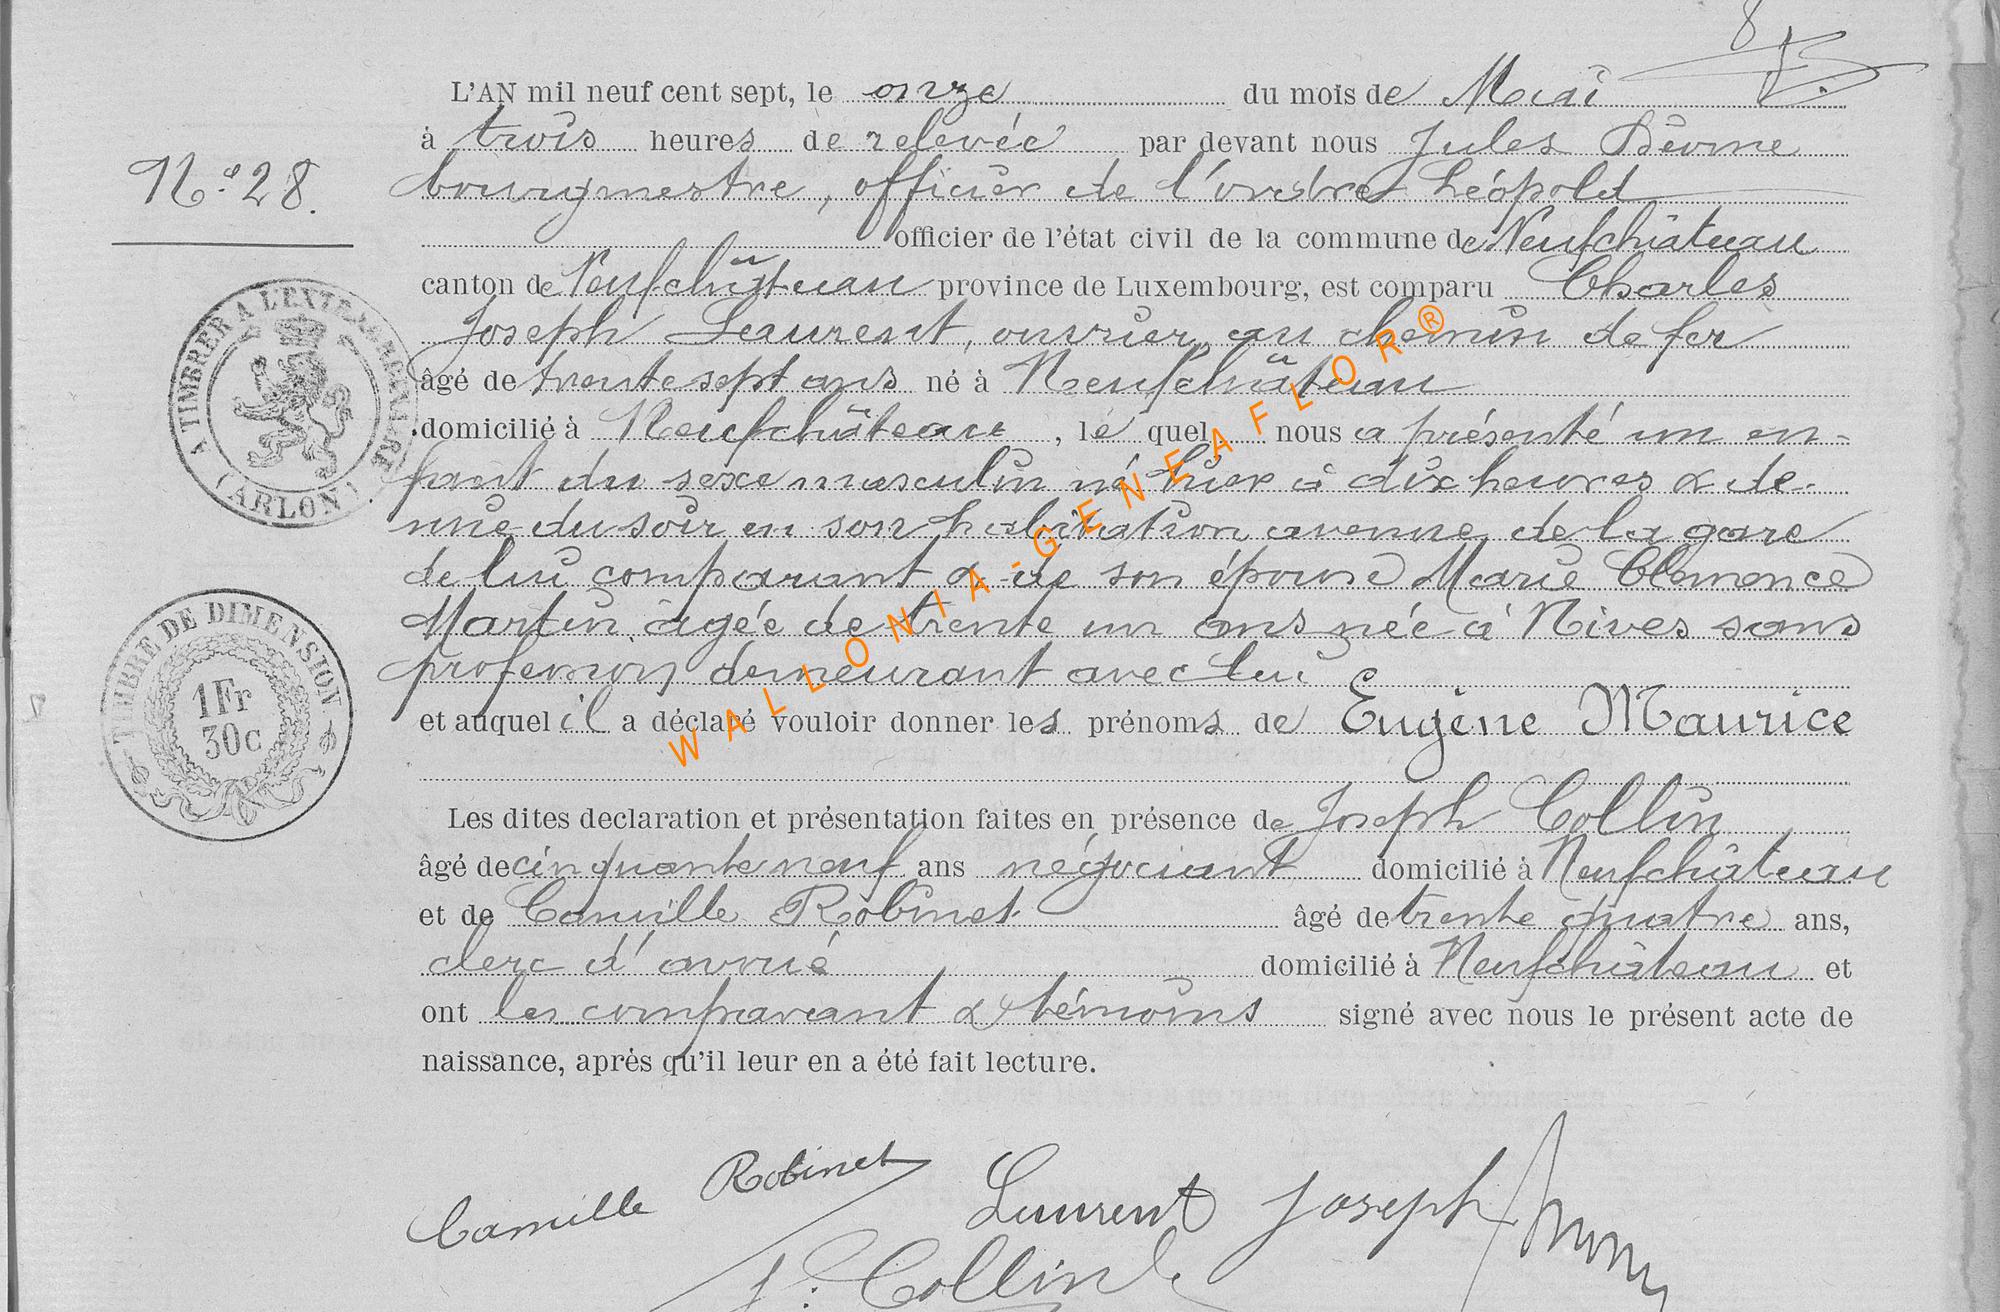 8
L'AN mil neuf cent sept, le onze du mois de Mai
à trois heures de relevée par devant nous Jules
N.° 28.
bourgmestre, officier de l'ordre Léopold
officier de l'état civil de la commune de Neufchâteau
canton de Neufchâteau province de Luxembourg, est comparu Charles
Joseph Laurent, ouvrier au chemin de fer
âgé de trente sept ans né à Neufchâteau
domicilié à Neufchâteau, le quel nous a présenté un en-
fant du sexe masculin né hier à dix heures & de-
mie du soir en son habitation avenue de la gare
de lui comparant & de son épouse Marie Clémence
Martin, âgée de trente un ans née à Nives sans
profession demeurant avec lui
et auquel il a déclaré vouloir donner les prénoms de Eugène Maurice
Les dites declaration et présentation faites en présence de Joseph Collin
âgé de cinquante neuf ans négociant domicilié à Neufchâteau
et de Camille Robinet âgé de trente quatre ans,
clerc d'avoué domicilié à Neufchâteau et
ont les comparant & témoins signé avec nous le présent acte de
naissance, après qu'il leur en a été fait lecture.
Camille Robinet
Laurent Joseph
J. Collin
A TIMBRER A L'EXTRAORDINAIRE
(ARLON)
TIMBRE DE DIMENSION
1Fr
30c
WALLONIA-GENEAFLOR®